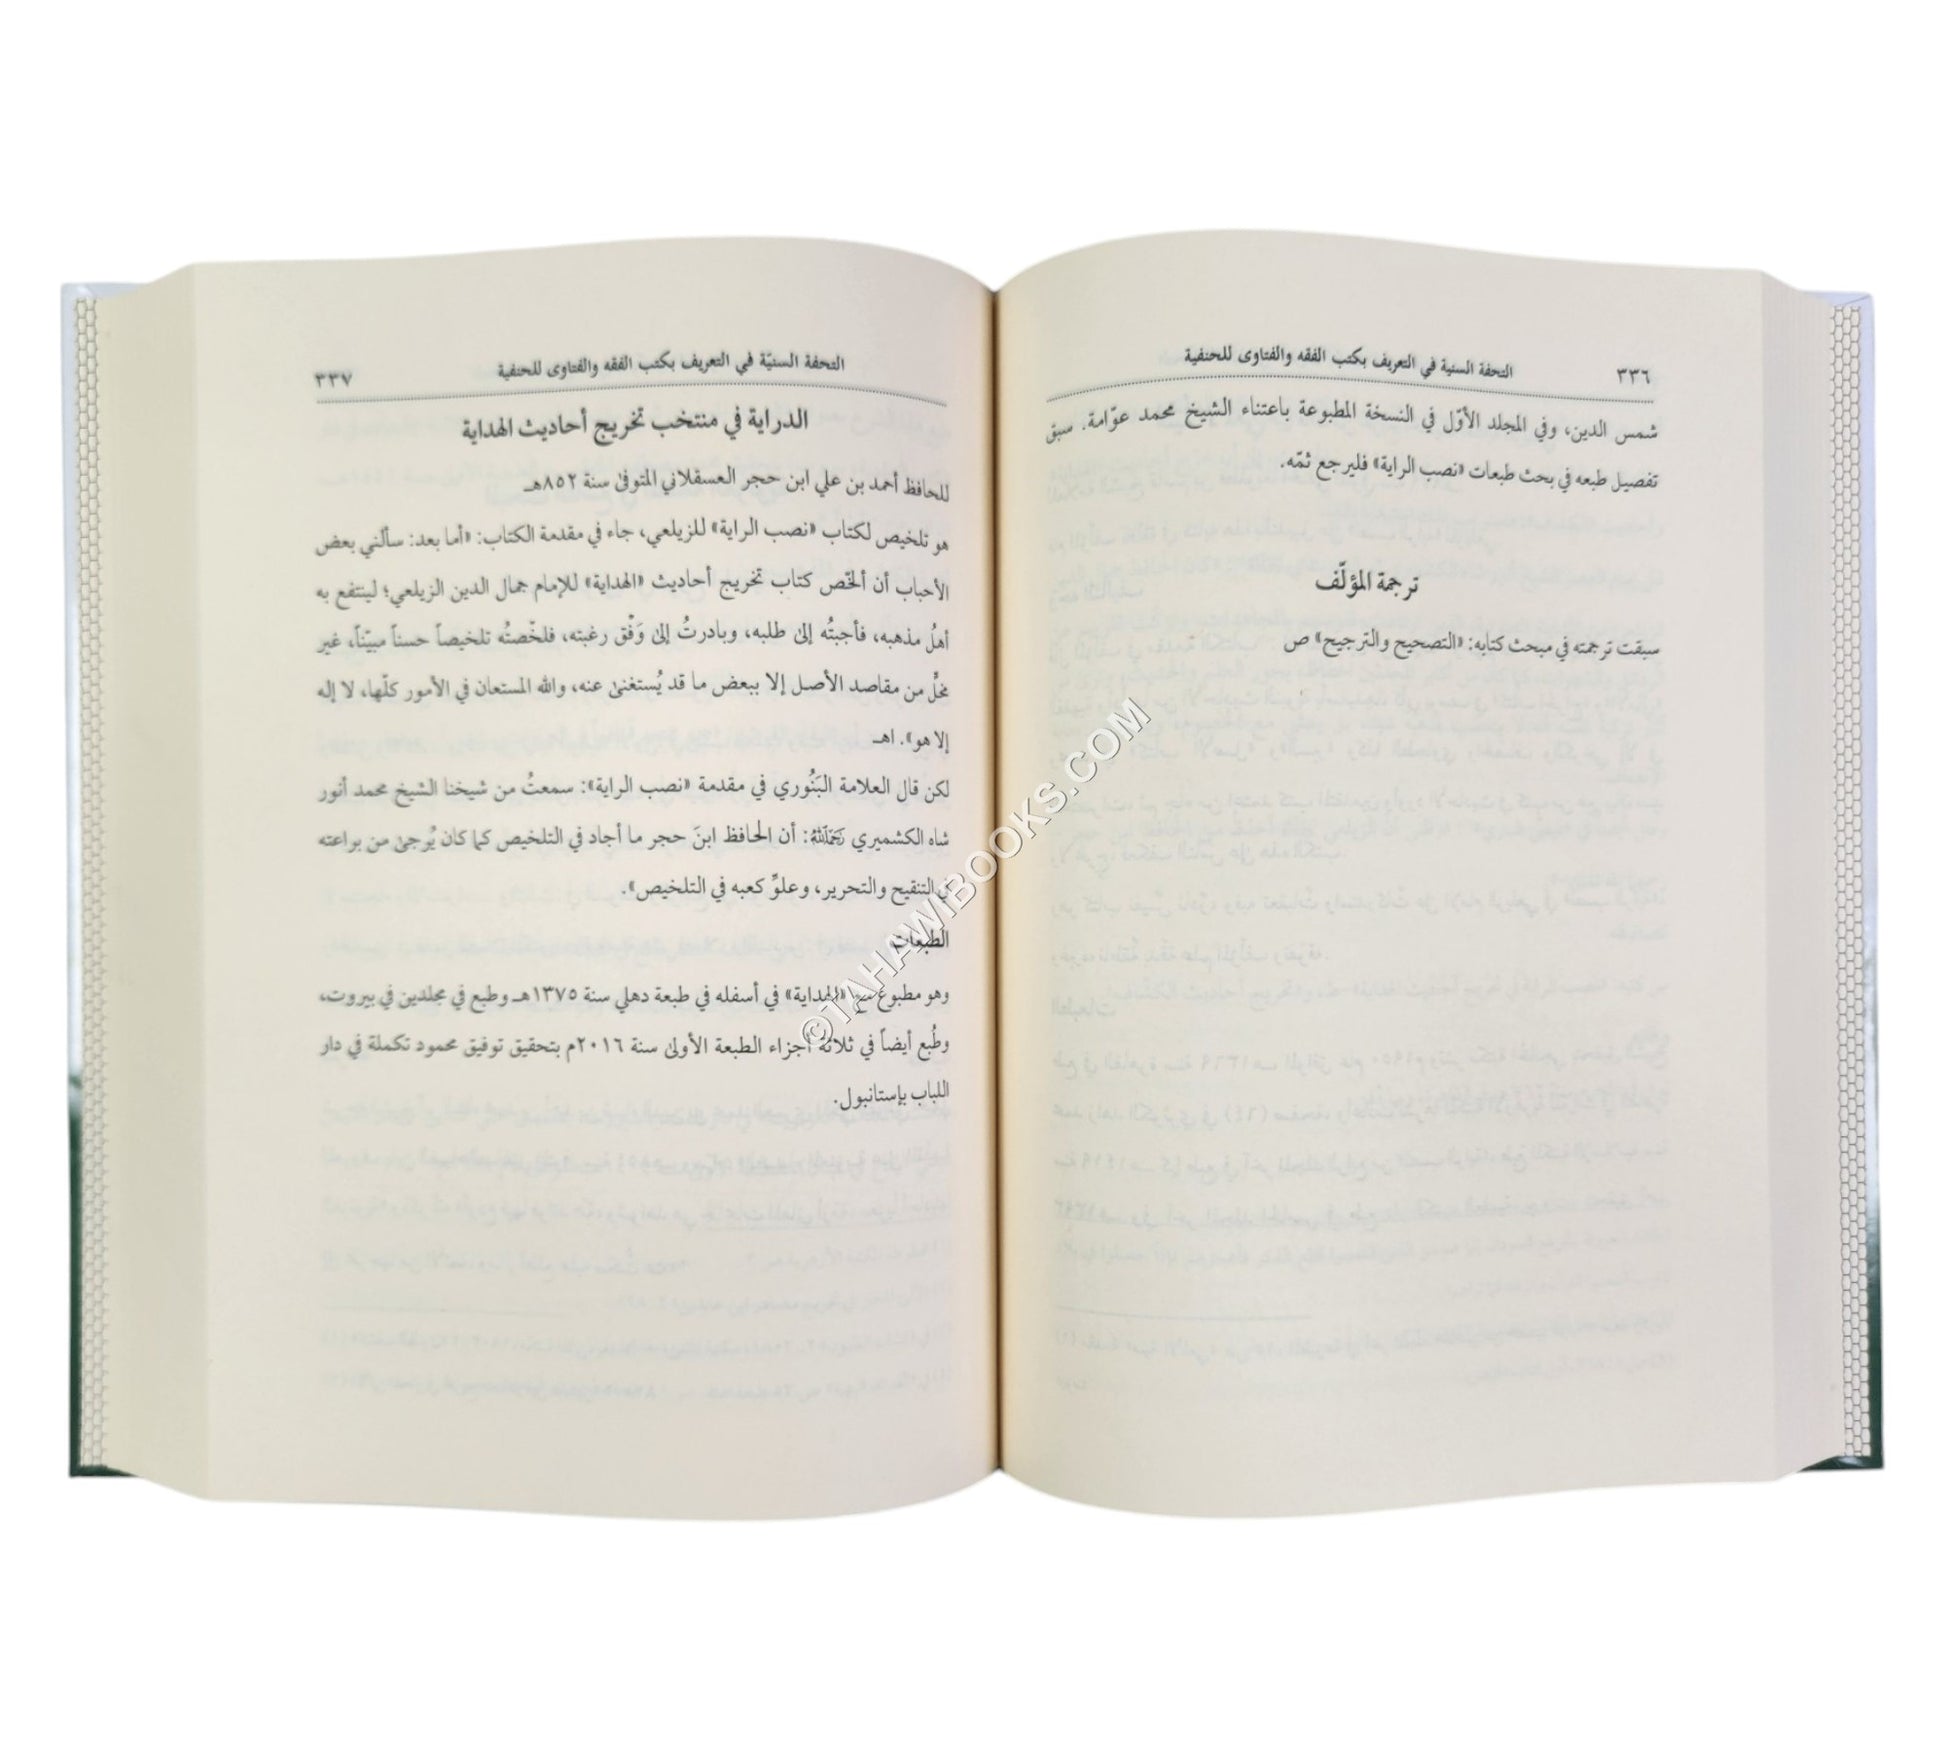 ٣٣٦ التحفة السنية في التعريف بكتب الفقه والفتاوى للحنفية
شمس الدين، وفي المجلد الأوّل في النسخة المطبوعة باعتناء الشيخ محمد عوّامة. سبق
تفصيل طبعه في بحث طبعات «نصب الراية» فليرجع ثمّه.
ترجمة المؤلّف
سبقت ترجمته في مبحث كتابه: «التصحيح والترجيح» ص
التحفة السنيّة في التعريف بكتب الفقه والفتاوى للحنفية ٣٣٧
الدراية في منتخب تخريج أحاديث الهداية
للحافظ أحمد بن علي ابن حجر العسقلاني المتوفى سنة ٨٥٢هـ
هو تلخيص لكتاب «نصب الراية» للزيلعي، جاء في مقدمة الكتاب: «أما بعد: سألني بعض
الأحباب أن ألخّص كتاب تخريج أحاديث «الهداية» للإمام جمال الدين الزيلعي؛ لينتفع به
أهلُ مذهبه، فأجبتُه إلى طلبه، وبادرتُ إلى وَفْق رغبته، فلخّصتُه تلخيصاً حسناً مبيّناً، غير
مخلٍّ من مقاصد الأصل إلا ببعض ما قد يُستغنى عنه، والله المستعان في الأمور كلّها، لا إله
إلا هو». اهـ
لكن قال العلامة البَنُوري في مقدمة «نصب الراية»: سمعتُ من شيخنا الشيخ محمد أنور
شاه الكشميري رَحِمَهُ اللهُ: أن الحافظ ابنَ حجر ما أجاد في التلخيص كما كان يُرجى من براعته
في التنقيح والتحرير، وعلوِّ كعبه في التلخيص».
الطبعات
وهو مطبوع مع «الهداية» في أسفله في طبعة دهلي سنة ١٣٧٥هـ وطبع في مجلدين في بيروت،
وطُبع أيضاً في ثلاثة أجزاء الطبعة الأولى سنة ٢٠١٦م بتحقيق توفيق محمود تكملة في دار
اللباب بإستانبول.
©TAHAWIBOOKS.COM